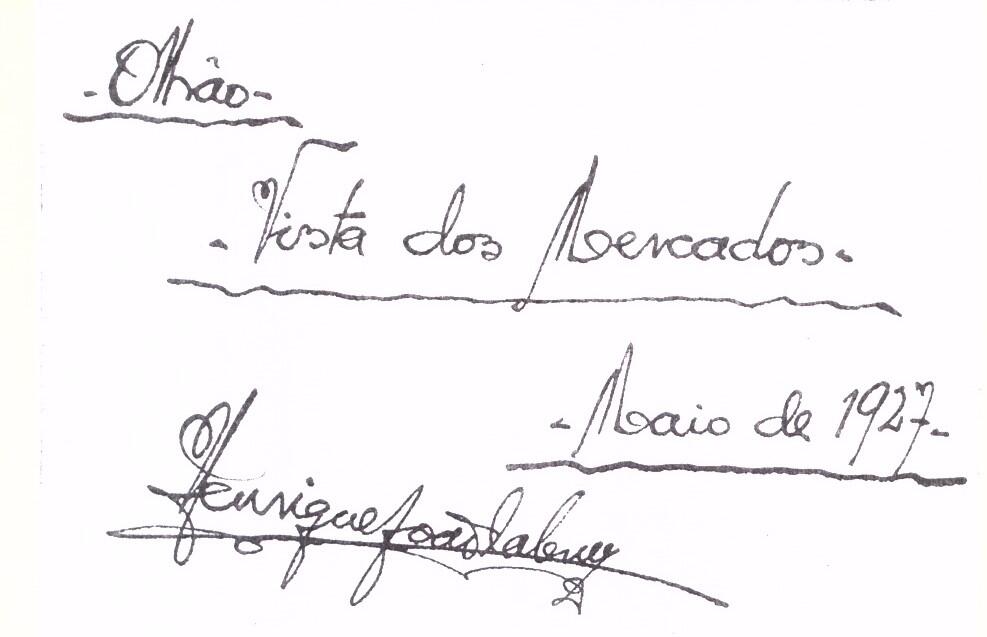 - Olhão -
- Vista dos Mercados -
- Maio de 1927 -
Henrique João